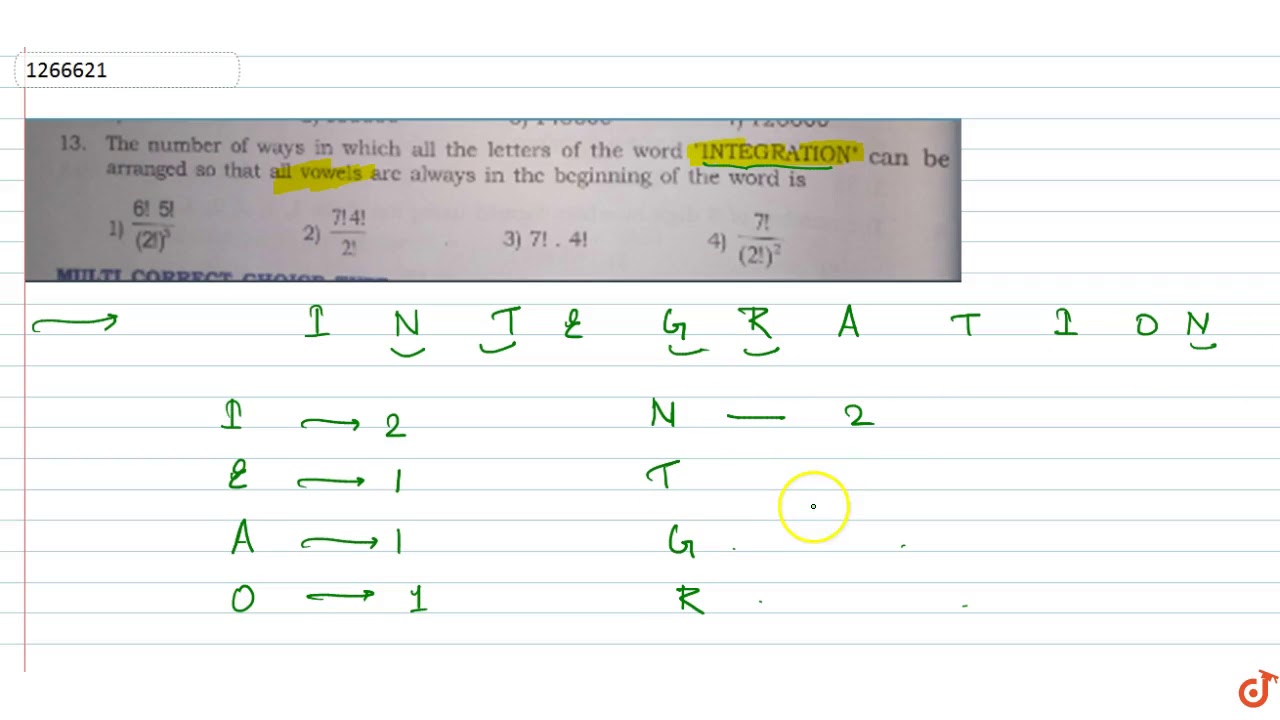 1266621
13. The number of ways in which all the letters of the word 'INTEGRATION' can be
arranged so that all vowels are always in the beginning of the word is
1) 6! 5! / (2!)³ 2) 7! 4! / 2! 3) 7! . 4! 4) 7! / (2!)²
MULTI CORRECT CHOICE
→ I N T E G R A T I O N
I → 2 N — 2
E → 1 T
A → 1 G
O → 1 R